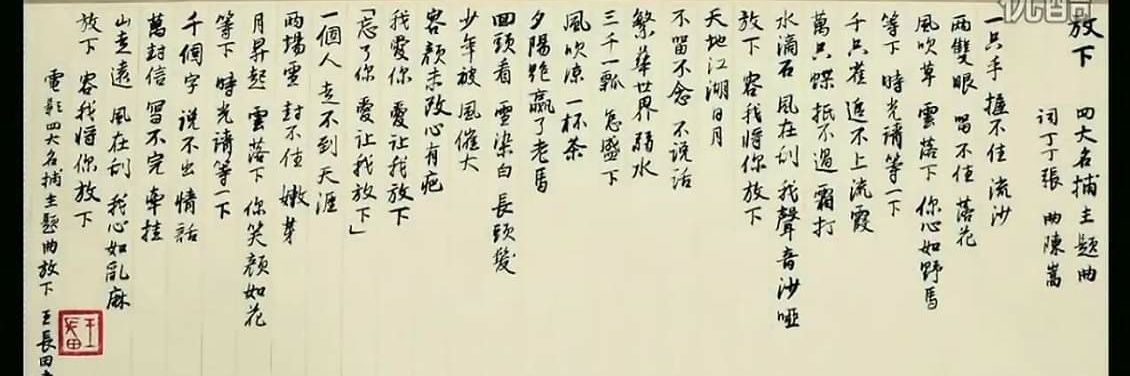 放下 四大名捕主題曲
词丁丁張 曲陳嵩
一只手 握不住 流沙
兩雙眼 留不住 落花
風吹草 雲落下 你心如野馬
等下 時光請等一下
千只雀 追不上 流霞
萬只蝶 抵不過 霜打
水滴石 風在刮 我聲音沙啞
放下 容我將你放下
天地江湖日月
不留不念 不说话
繁華世界弱水
三千一瓢 怎盛下
風吹凉一杯茶
夕陽跑贏了老馬
回頭看 雪染白 長頭髮
少年被風催大
容颜未改心有疤
我愛你 愛讓我放下
「忘了你 愛讓我放下」
一個人 走不到 天涯
兩場雪 封不住 嫩芽
月昇起 雲落下 你笑顏如花
等下 時光請等一下
千個字 说不出 情話
萬封信 寫不完 牽挂
山走遠 風在刮 我心如亂麻
放下 容我將你放下
電影四大名捕主題曲放下 王長田
王長田
优酷